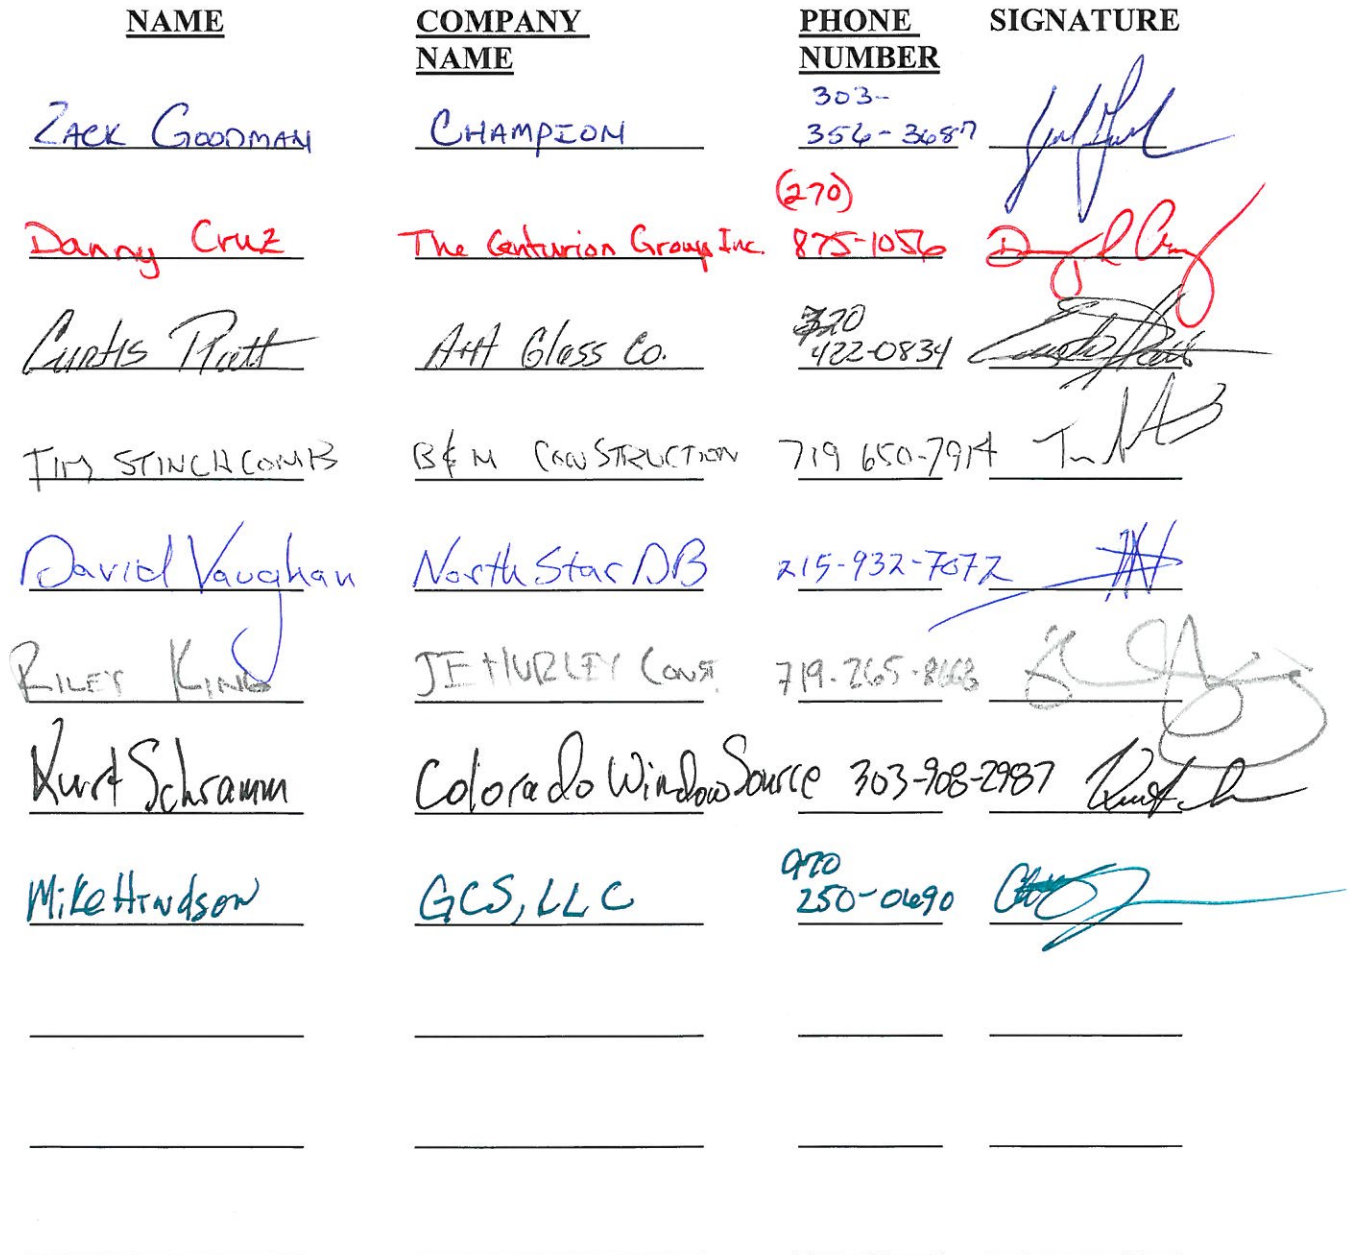 NAME COMPANY NAME PHONE NUMBER SIGNATURE
ZACK GOODMAN CHAMPION 303-356-3687
Danny Cruz The Centurion Group Inc. (270) 875-1056
Curtis Pratt A&A Glass Co. 720 422-0834
TIM STINCHCOMB B&M CONSTRUCTION 719 650-7914
David Vaughan North Star DB 215-932-7072
RILEY KING JE HURLEY CONST. 719-265-8668
Kurt Schramm Colorado Window Source 303-908-2987
Mike Hindson GCS, LLC 970 250-0690